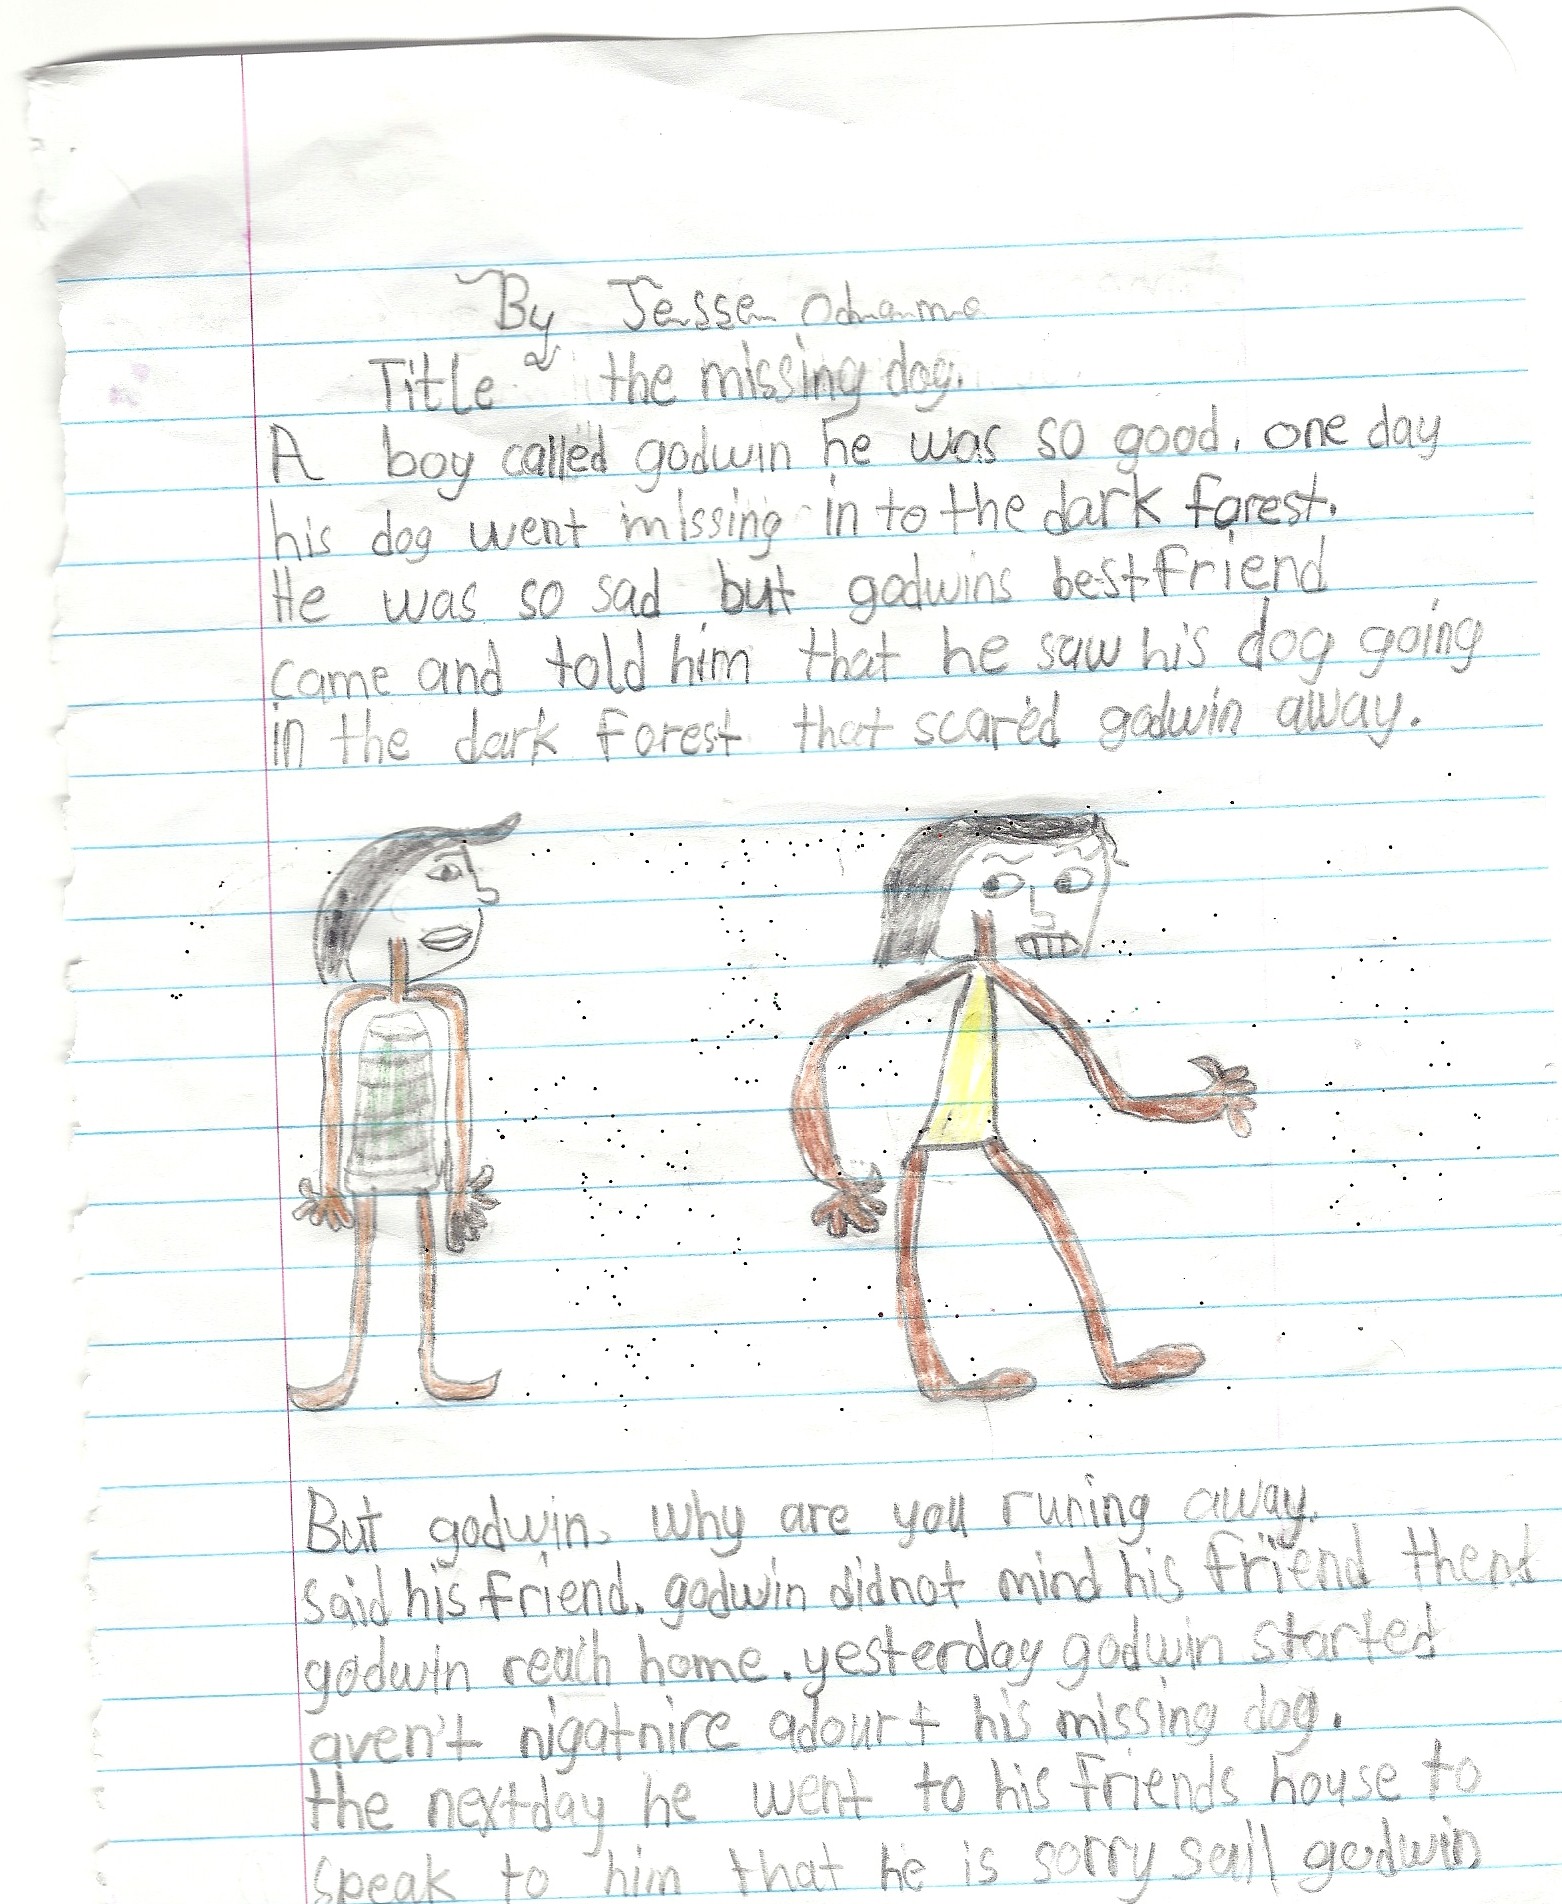 By Jesse Odname
Title the missing dog.
A boy called godwin he was so good. one day
his dog went missing in to the dark forest.
He was so sad but godwins best friend
came and told him that he saw his dog going
in the dark forest that scared godwin away.
But godwin, why are you runing away.
said his friend. godwin didnot mind his friend thent
godwin reach home. yesterday godwin started
aven't nigatnire adourt his missing dog.
the nextday he went to his friends house to
speak to him that he is sorry sail godwin